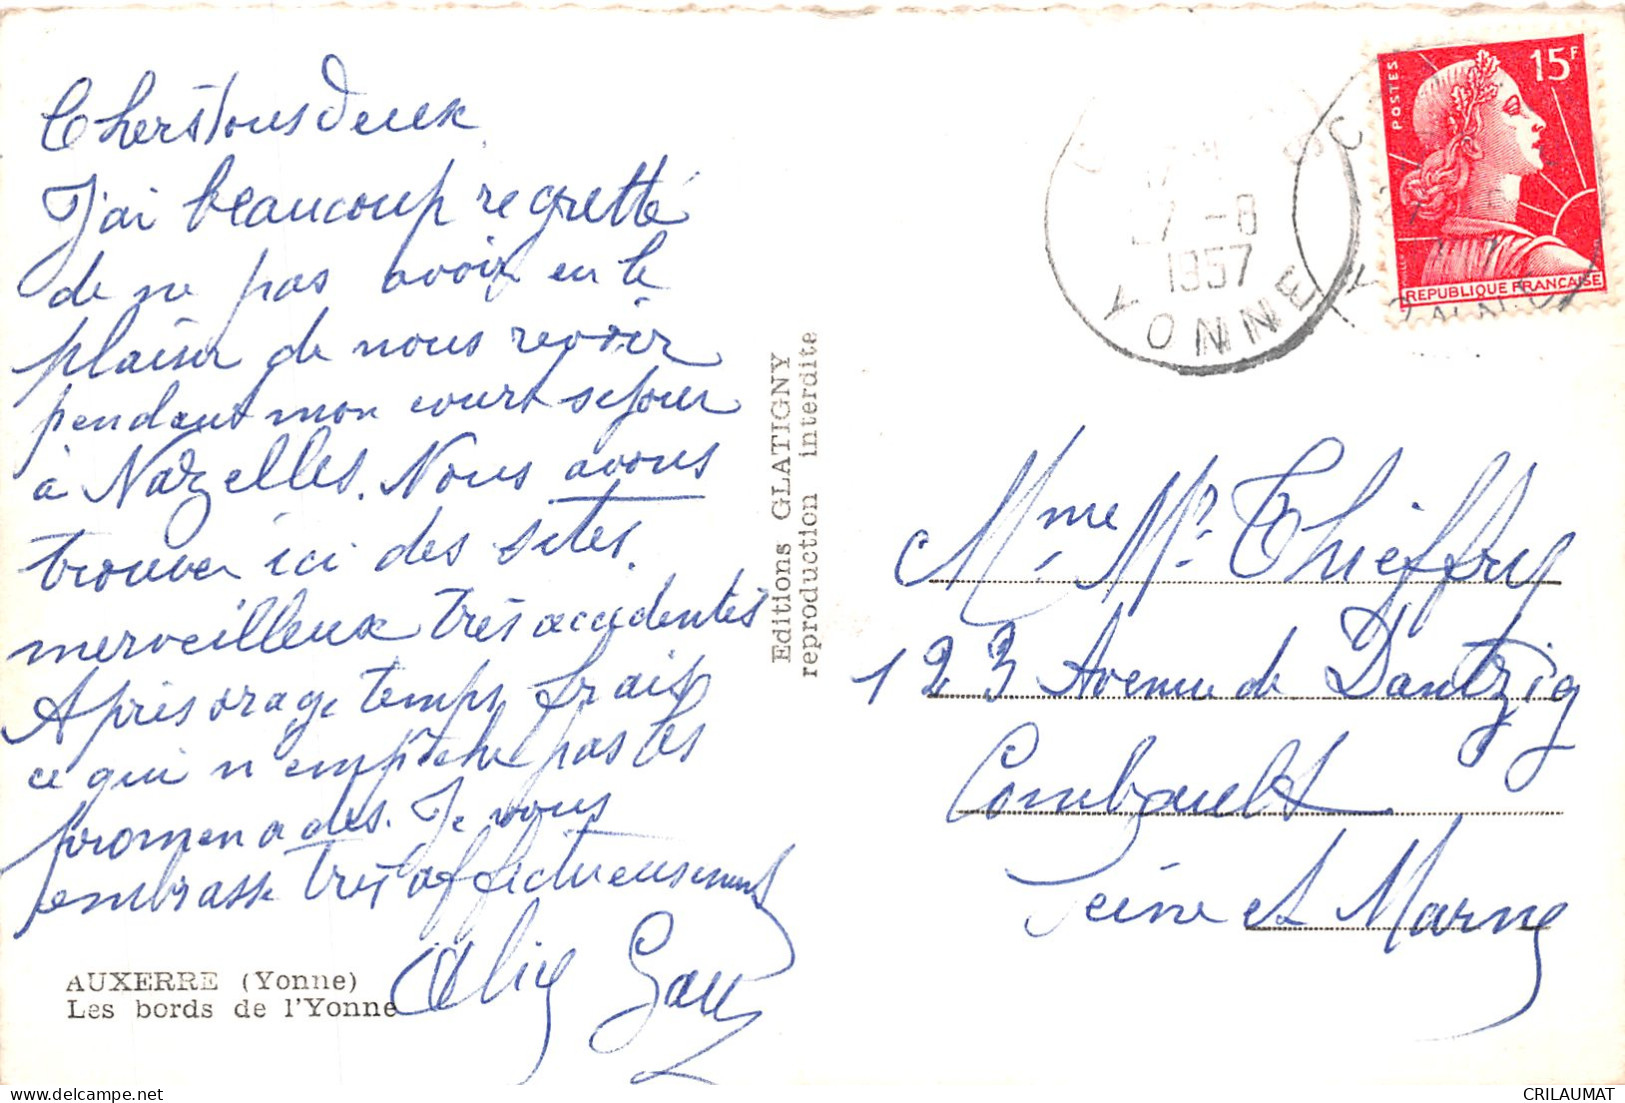 Chers tous deux
J'ai beaucoup regretté
de ne pas avoir eu le
plaisir de nous revoir
pendant mon court séjour
à Nazelles. Nous avons
trouver ici des sites
merveilleux très accidentés
Après orage temps frais
ce qui n'empêche pas les
promenades. Je vous
embrasse très affectueusement
Alice
AUXERRE (Yonne)
Les bords de l'Yonne
Editions GLATIGNY
reproduction interdite
-8
1957
YONNE
POSTES
15F
REPUBLIQUE FRANÇAISE
Mme Mr Thieffry
123 Avenue de Dantzig
Combault
Seine et Marne
CRILAUMAT